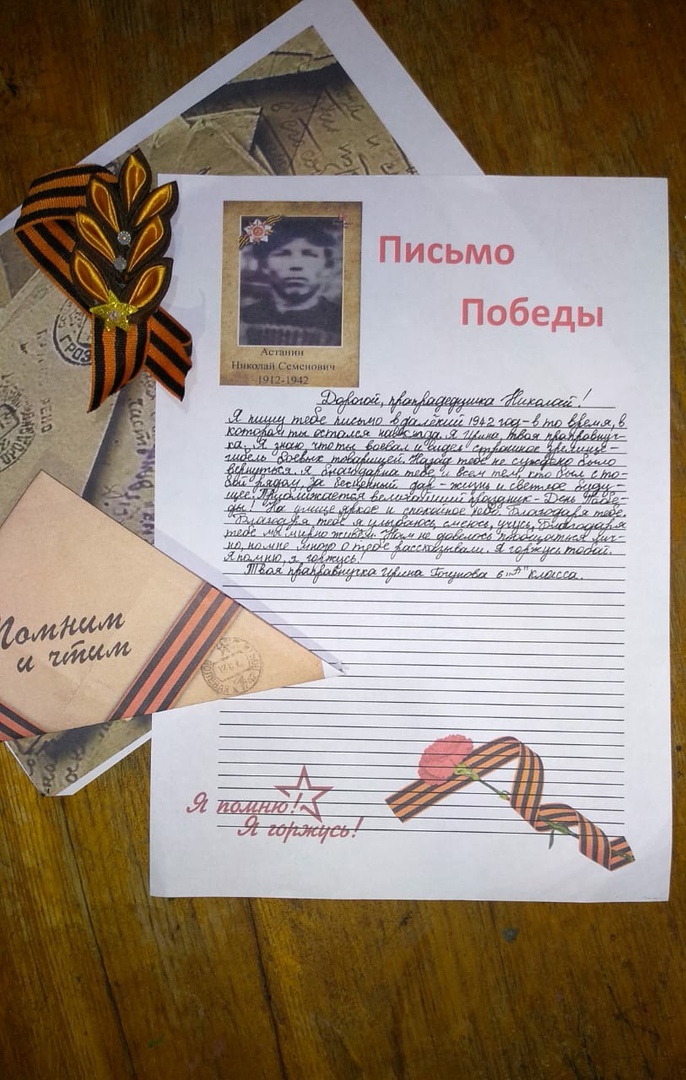 Письмо
Победы
Астанин
Николай Семенович
1912-1942
Дорогой, прапрадедушка Николай!
Я пишу тебе письмо в далёкий 1942 год - в то время, в
котором ты остался навсегда. Я Ирина, твоя праправнуч-
ка. Я знаю, что ты воевал и видел страшное зрелище -
гибель боевых товарищей. Назад тебе не суждено было
вернуться. Я благодарна тебе и всем тем, кто был с то-
бой рядом, за бесценный дар - жизнь и светлое буду-
щее. Приближается величайший праздник - День Побе-
ды! На улице яркое и спокойное небо. Благодаря тебе.
Благодаря тебе я улыбаюсь, смеюсь, учусь. Благодаря
тебе мы мирно живём. Нам не довелось пообщаться лич-
но, но мне много о тебе рассказывали. Я горжусь тобой.
Я помню, я горжусь!
Твоя праправнучка Ирина 6 класса.
Помним
и чтим
Я помню!
Я горжусь!